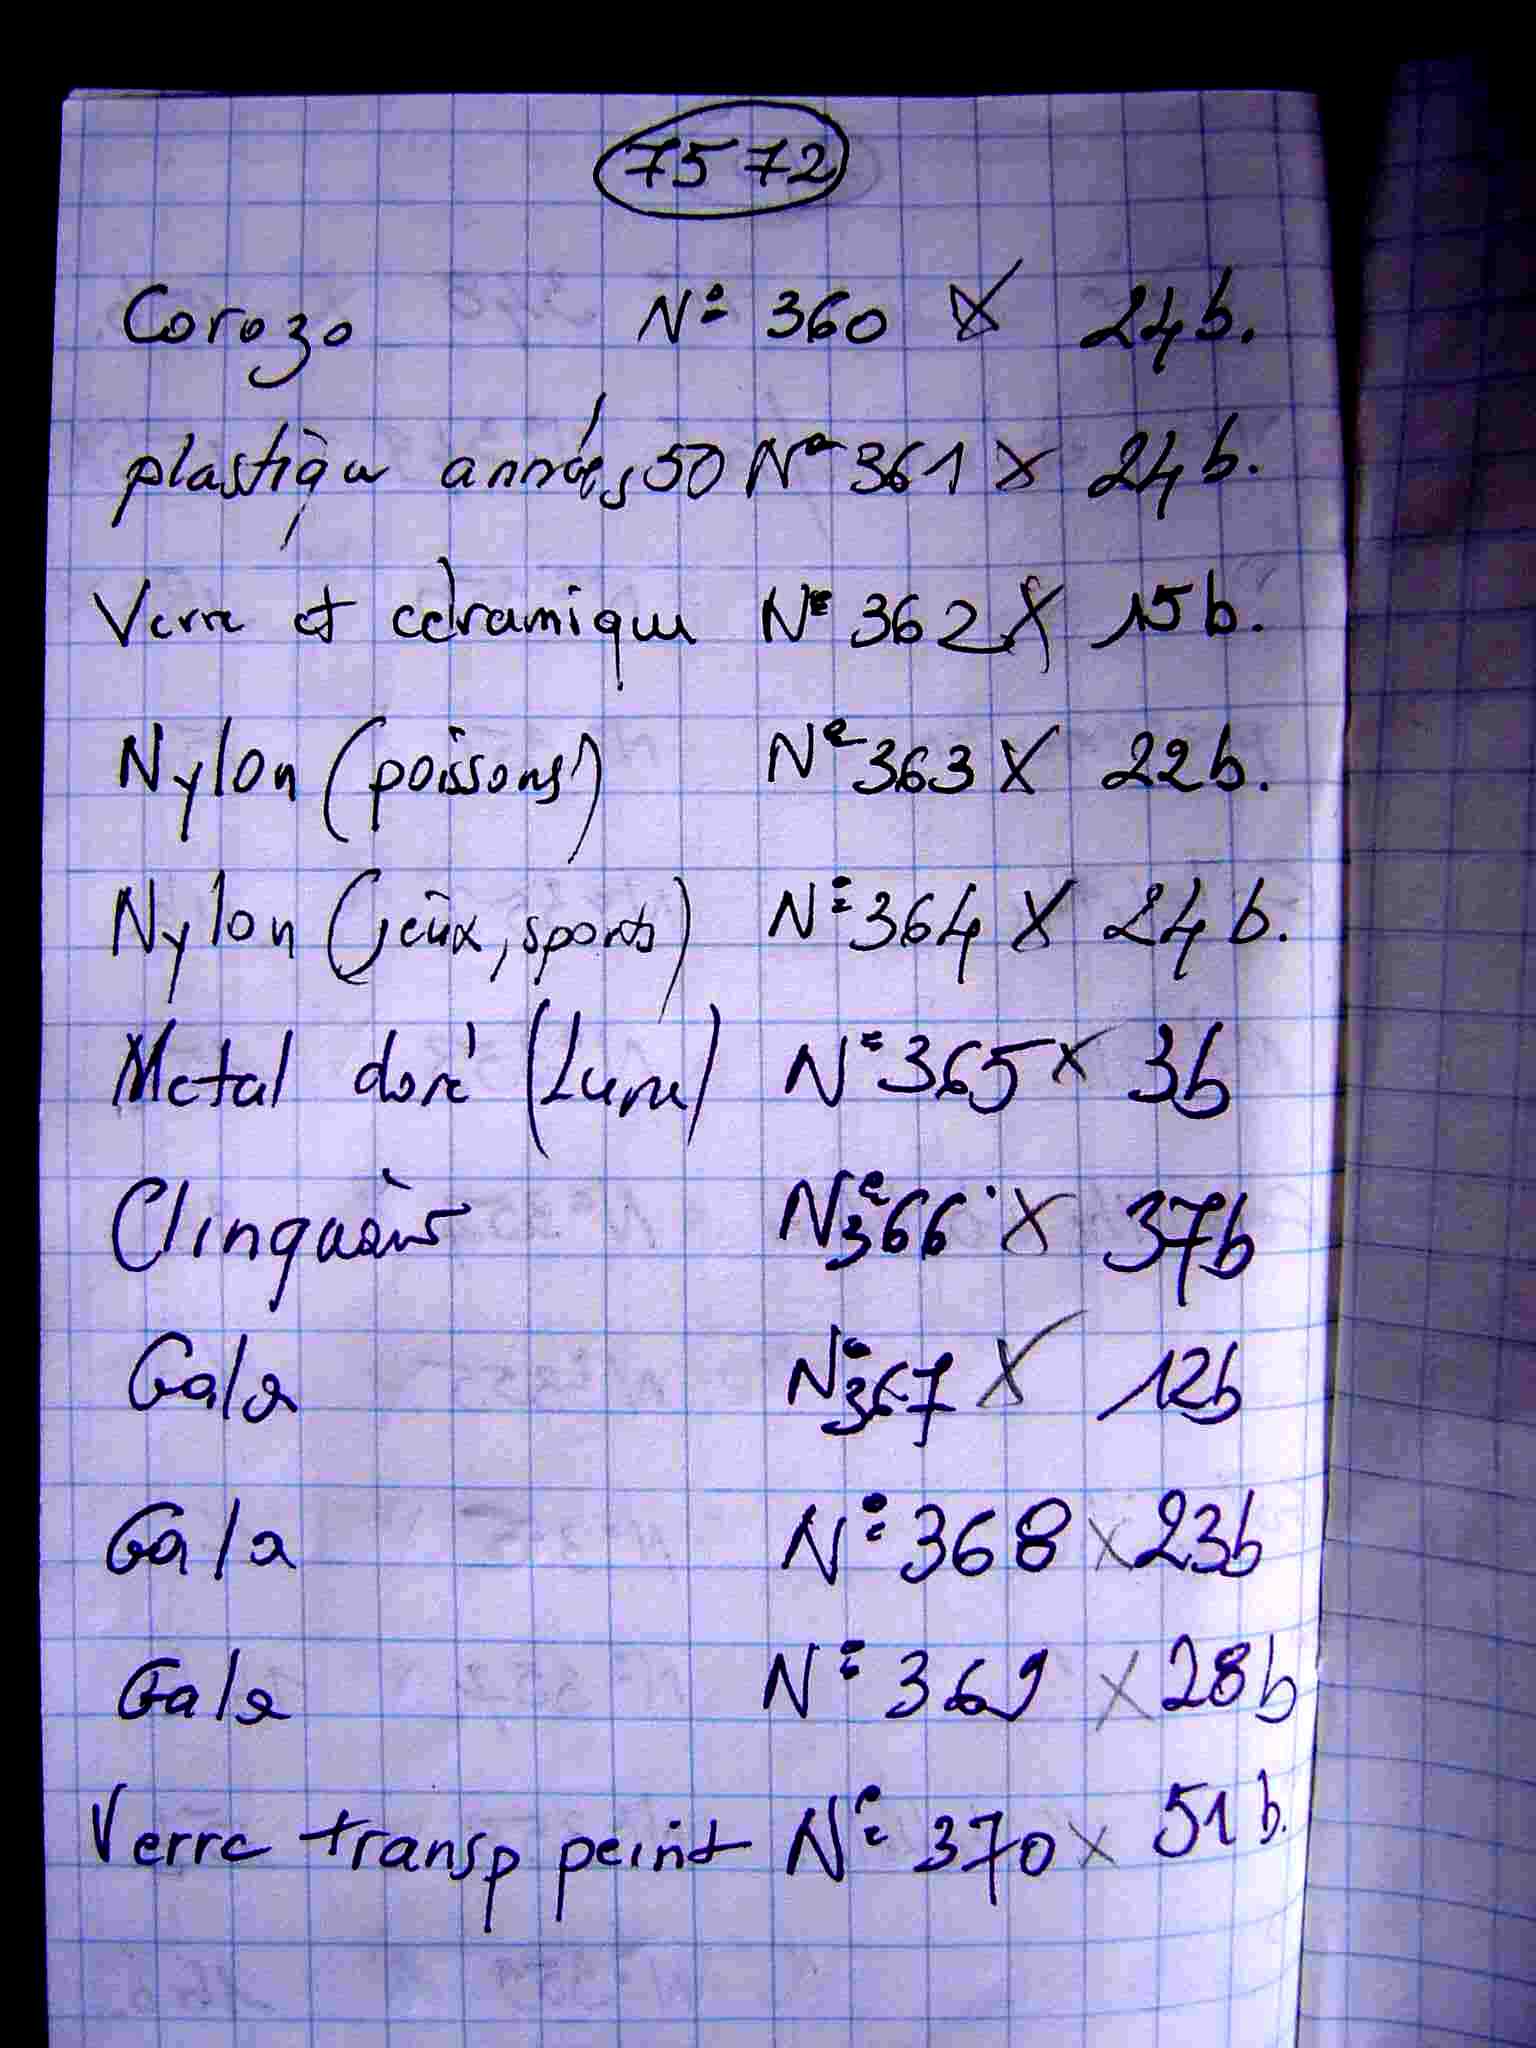 7572
Corozo N° 360 X 24b.
plastique années 50 N° 361 X 24b.
Verre et céramique N° 362 X 15b.
Nylon (poissons) N° 363 X 22b.
Nylon (jeux, sports) N° 364 X 24b.
Metal doré (Lune) N° 365 X 3b
N° 366 X 37b
Gala N° 367 X 12b
Gala N° 368 X 23b
Gala N° 369 X 28b
Verre transp peint N° 370 X 51b.